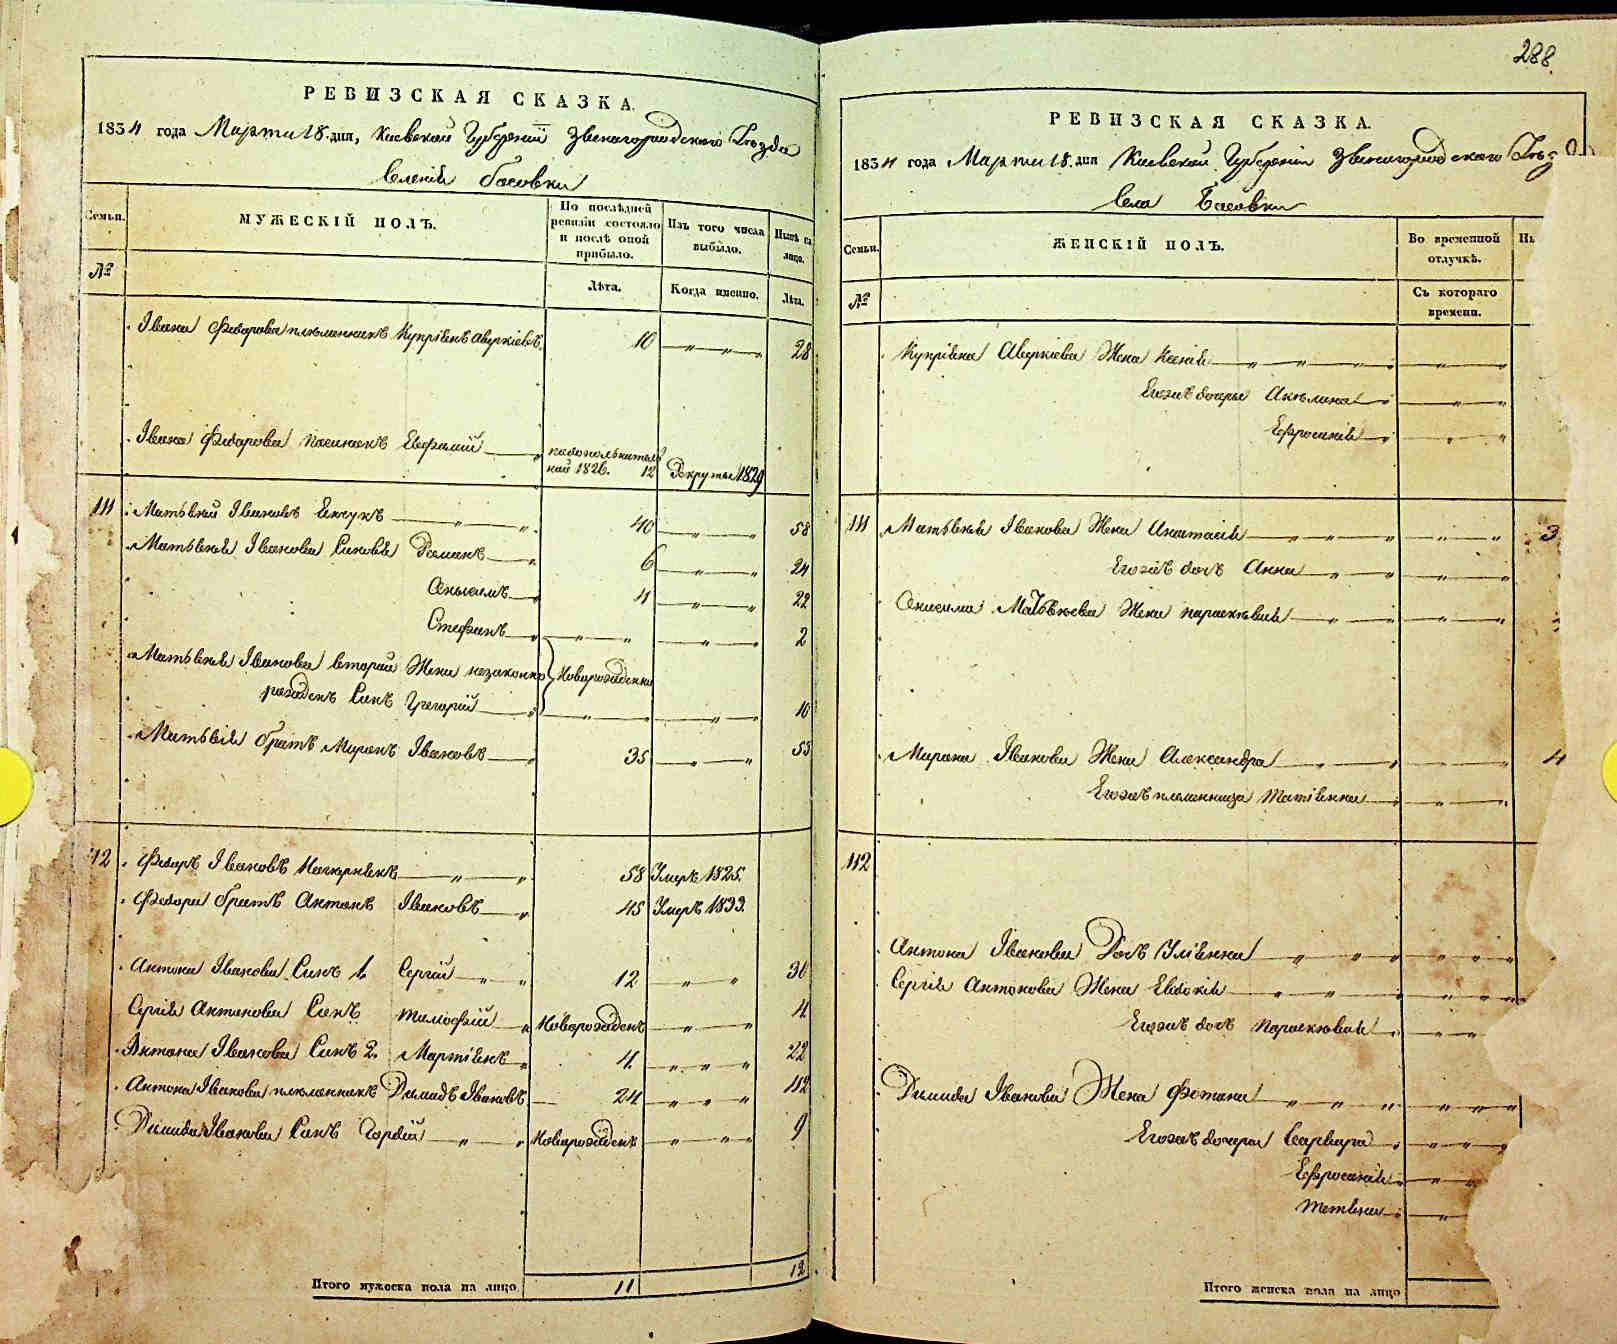 РЕВИЗСКАЯ СКАЗКА.
1834 года Марта 18 дня, Киевской Губернии Звенигородского Уезда
Селения Босовки
Семьи.
МУЖЕСКІЙ ПОЛЪ.
По послѣдней ревизіи состояло и послѣ оной прибыло.
Изъ того числа выбыло.
Нынѣ на лицо.
№
Лѣта.
Когда именно.
Лѣта.
Івана Федорова племянникъ Купріянъ Аверкіевъ 10 28
Івана Федорова Евфимій 1826. 12 Рекруты 1829
111 Матьвѣй Івановъ 40 58
Матьвѣя Іванова Синовья Романъ 6 24
Онысимъ 4 22
Стефанъ 2
Матьвѣя Іванова второй Жени незаконно
Новорожденни
рожденъ Синъ Григорій 10
Матьвѣя братъ Миронъ Івановъ 35 53
112 Федоръ Івановъ 58 Умеръ 1825.
Федора братъ Антонъ Івановъ 45 Умеръ 1833.
Антона Іванова Синъ 1. Сергій 12 30
Сергія Антонова Синъ Тимофій Новорожденъ 4
Антона Іванова Синъ 2. Мартинъ 4. 22
Антона Іванова племянникъ Димидъ Івановъ 24 42
Димида Іванова Синъ Гордій Новорожденъ 9
Итого мужеска пола на лицо 11 12
288
РЕВИЗСКАЯ СКАЗКА.
1834 года Марта 18. дня Киевской Губернии Звенигородского
Села Босовки
Семьи.
ЖЕНСКІЙ ПОЛЪ.
Во временной отлучкѣ.
Ны
№
Съ котораго времени.
Купріяна Аверкіева Жена Ксенія
Егожъ дочеры Акилина
Ефросинія
111 Матьвѣя Іванова Жена Анастасія 3
Егожъ дочь Анна
Онисима Матьвѣева Жена Параскѣвія
Мирона Іванова Жена Александра 4
Егожъ племенница Татіянна
112
Антона Іванова Дочь Уліянна
Сергія Антонова Жена Евдокія
Егожъ дочь Параскювія
Димида Іванова Жена Фотина
Егожъ дочери Варвара
Ефросинія
Тетяна
Итого женска пола на лицо